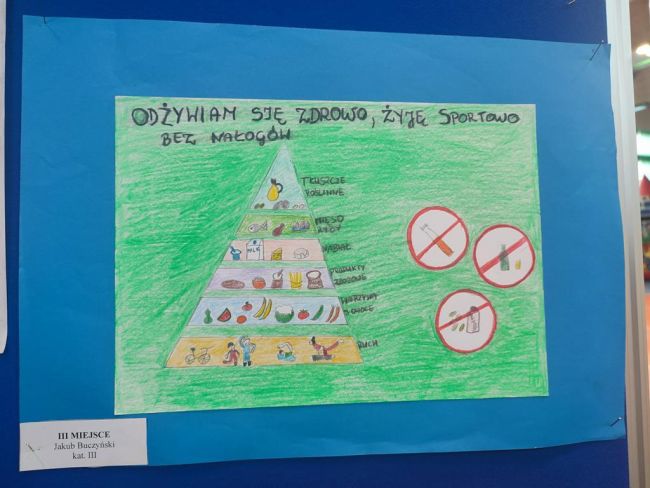 ODŻYWIAM SIĘ ZDROWO, ŻYJĘ SPORTOWO
BEZ NAŁOGÓW
TŁUSZCZE
ROŚLINNE
MIĘSO
RYBY
NABIAŁ
PRODUKTY
ZBOŻOWE
WARZYWA
OWOCE
RUCH
III MIEJSCE
Jakub Buczyński
kat. III